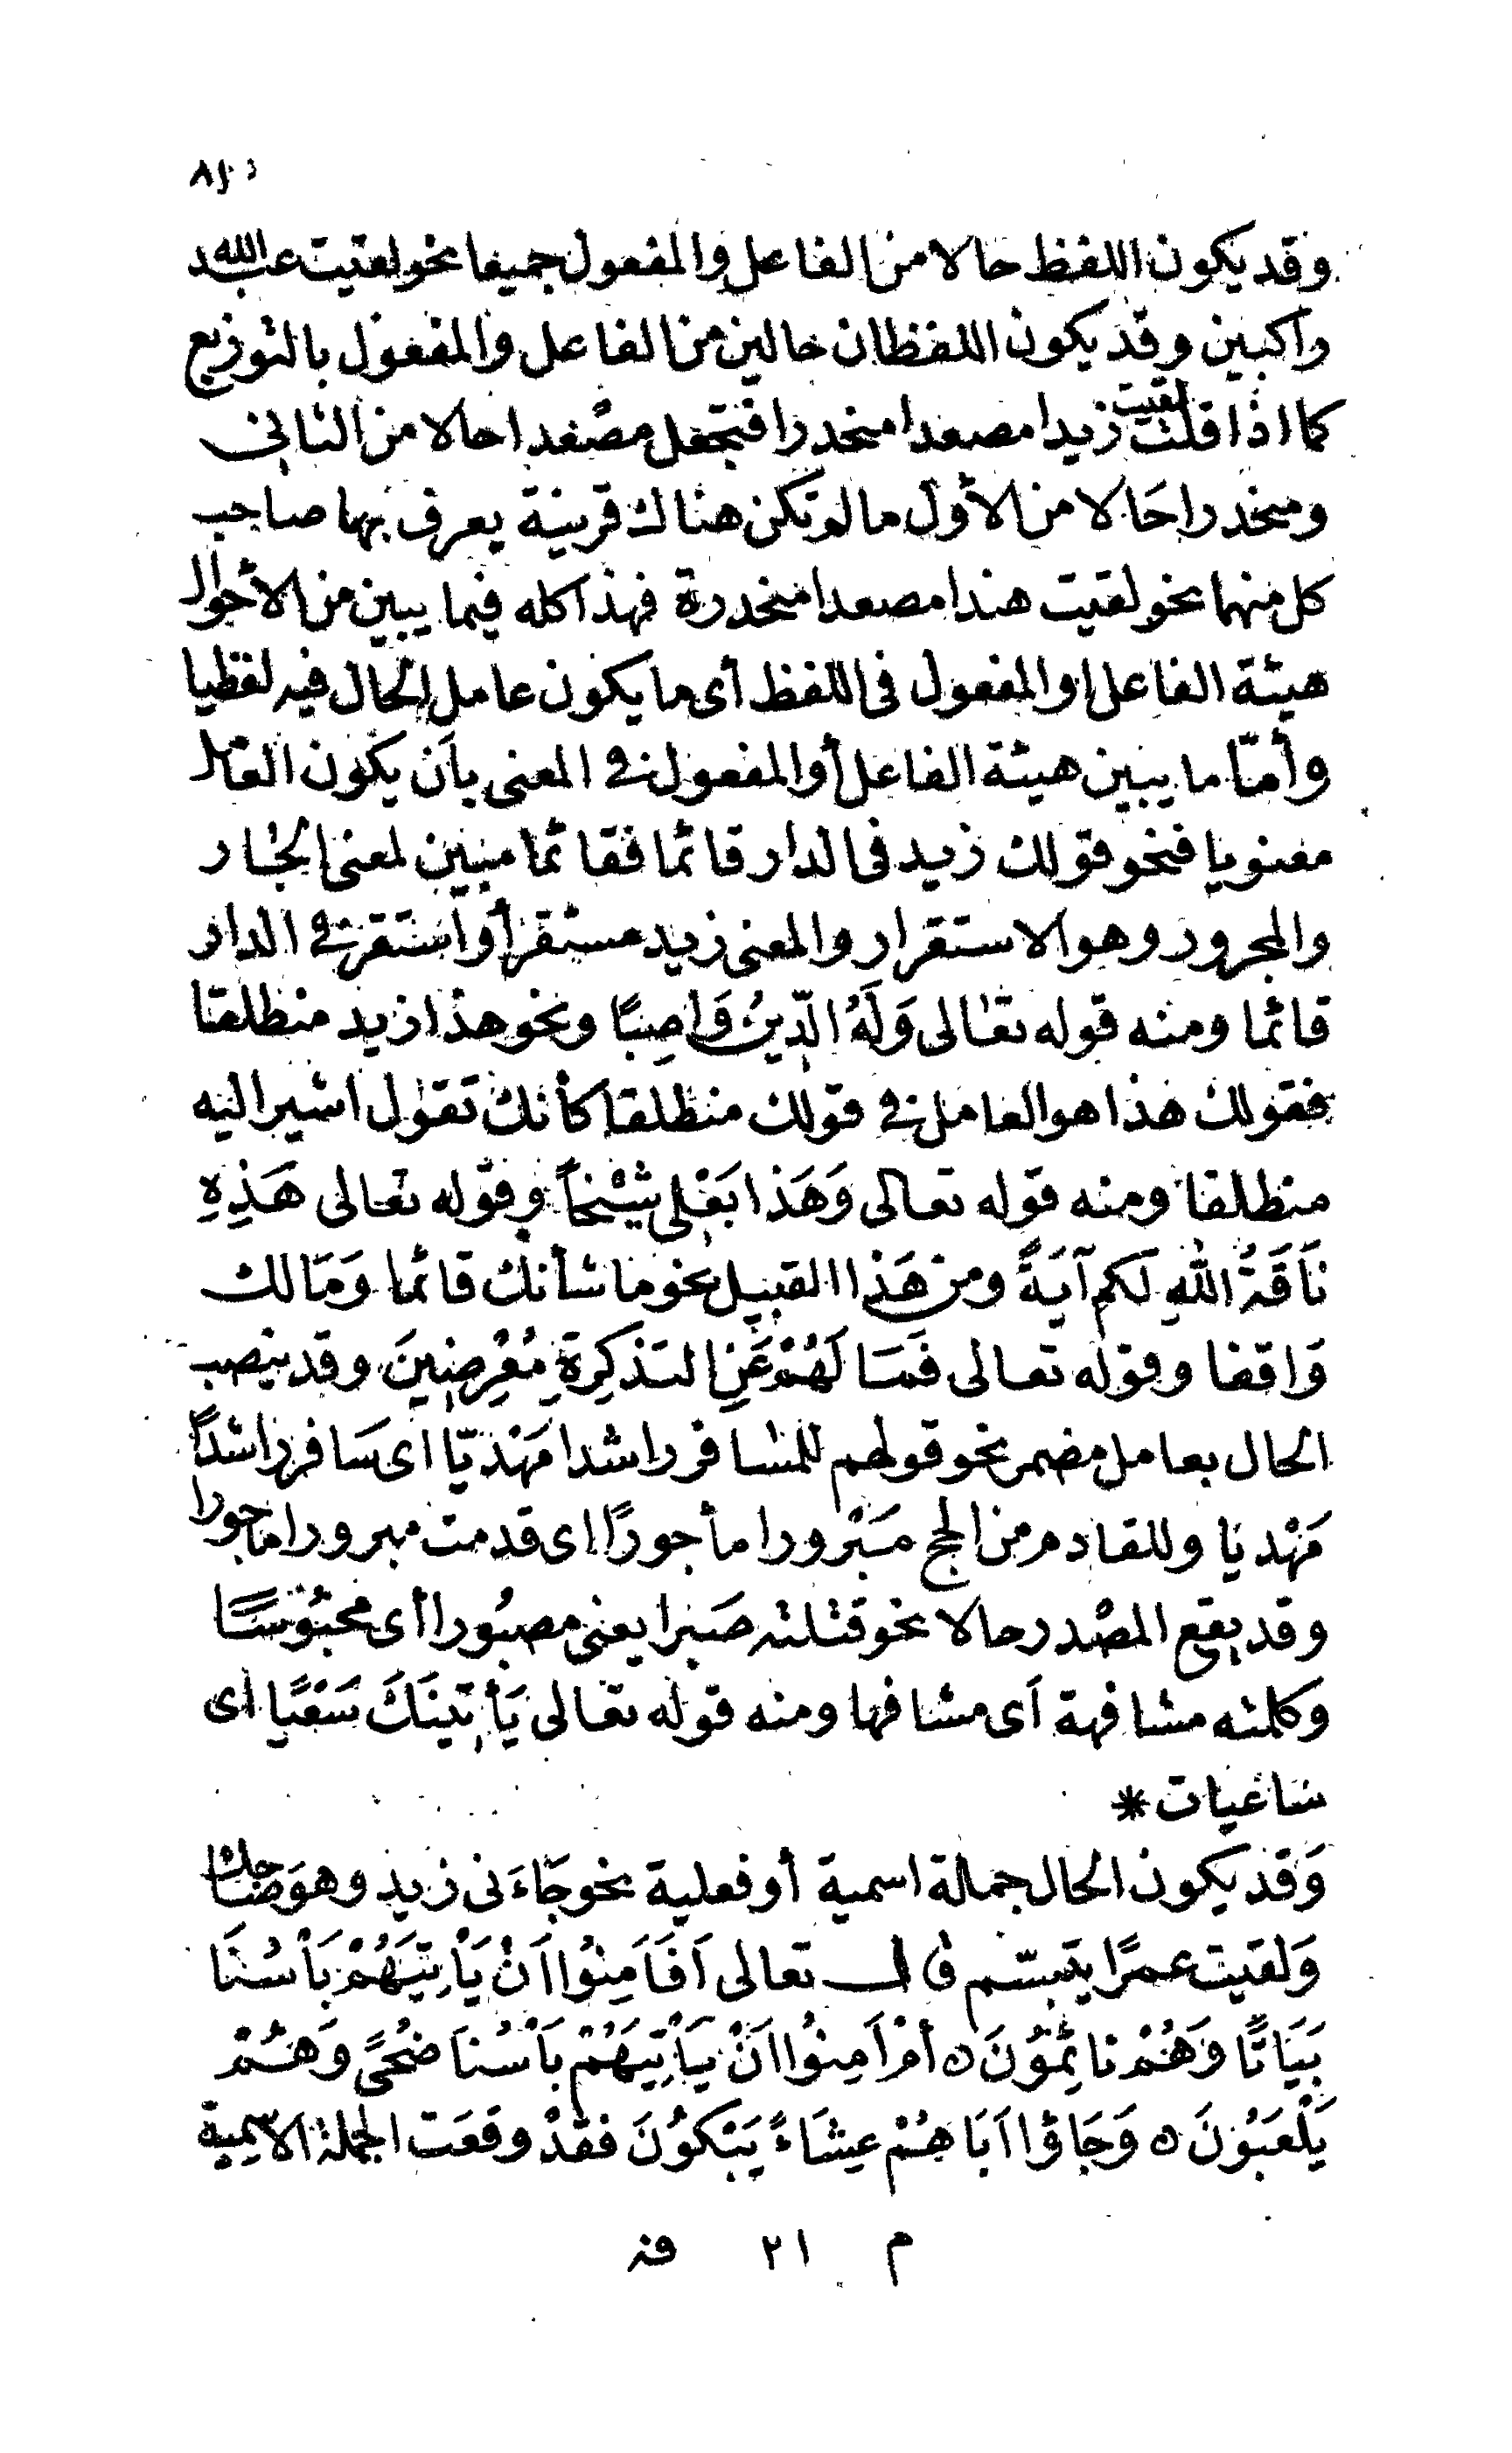 وقد يكون اللفظ حالا من الفاعل والمفعول جميعا نحو لقيت عبد الله
راكبين وقد يكون اللفظان حالين من الفاعل والمفعول بالتوزيع
كما اذا قلت لقيت زيدا مصعدا منحدرا فتجعل مصعدا حالا من الثانى
ومنحدرا حَالا من الأول ما لم تكن هناك قرينة يعرف بها صاحب
كل منهما نحو لقيت هندا مصعدا منحدرة فهذا كله فيما يبين من الأحوال
هيئة الفاعل او المفعول فى اللفظ أى ما يكون عامل الحال فيه لفظيا
وأمّا ما يبين هيئة الفاعل أو المفعول فى المعنى بأن يكون العامل
معنويا فنحو قولك زيد فى الدار قائما فقائما مبين لمعنى الجار
والمجرور وهو الاستقرار والمعنى زيد مستقر أو استقر فى الدار
قائما ومنه قوله تعالى وَلَهُ الدّينُ وَاصِبًا ونحو هذا زيد منطلقا
فقولك هذا هو العامل فى قولك منطلقا كأنك تقول اشير اليه
منطلقا ومنه قوله تعالى وَهَذا بَعْلِى شَيْخاً وقوله تعالى هَذِهِ
نَاقَةُ اللهِ لَكم آيَةً ومن هَذا القبيل نحو ما شأنك قائما وَمَا لك
وَاقفا وقوله تعالى فَمَا لَهُمْ عَنِ التَذكِرَةِ مُعْرِضِينَ وقد ينصب
الحال بعامل مضمر نحو قولهم للمسافر راشدا مَهْديّا اى سَافر راشدًا
مَهْديا وللقادم من الحج مَبْرورا مأجورًا اى قدمت مبرورا ماجورا
وقد يقع المصْدر حالا نحو قتلته صَبرا يعنى مصبُورا أى محبُوسًا
وكلمته مشافهة أى مشافها ومنه قوله تعالى يَأتِينَكَ سَعْيًا اى
ساعيات *
وَقد يكون الحال جملة اسمية أو فعلية نحو جَاءَنى زيد وهو ضَاحك
وَلقيت عمرًا يتبسّم قال تعالى اَفَاَمِنُوا اَنْ يَأْتِيَهُمْ بَأْسُنَا
بَيَاتًا وَهُمْ نائِمُونَ ه أمْ اَمِنُوا اَنْ يَأْتِيَهُمْ بَأْسُنَا ضُحًى وَهُمْ
يَلْعَبُونَ ه وَجَاؤا اَبَاهُمْ عِشَاءً يَبْكُونَ فقدْ وقعَت الجملة الاسمية
م ٢١ فد